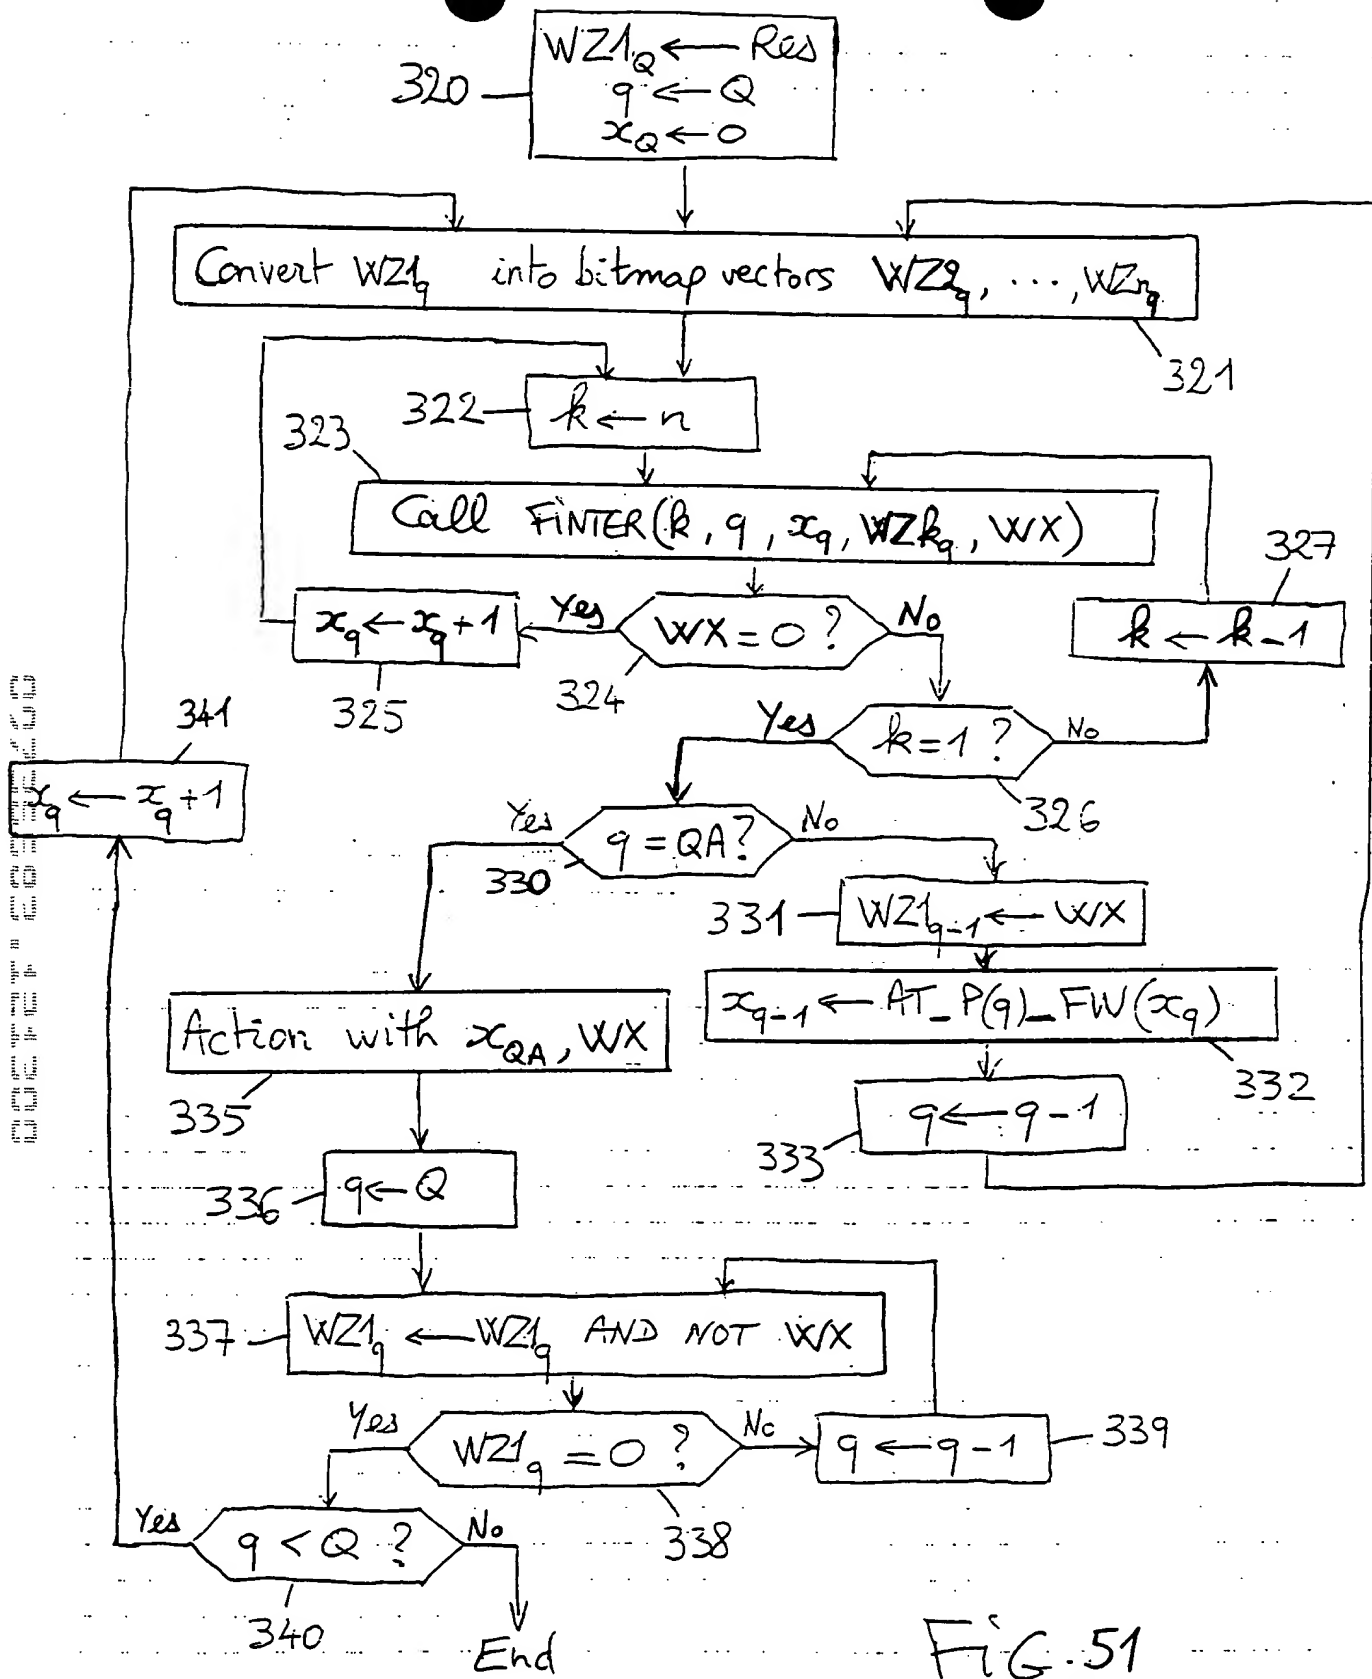 WZ1Q ← Res
320
q ← Q
xQ ← 0
Convert WZ1q into bitmap vectors WZ2q, ..., WZnq
321
322
k ← n
323
Call FiNTER(k, q, xq, WZkq, WX)
327
xq ← xq + 1
Yes
WX = 0 ?
No
k ← k - 1
325
324
341
Yes
k = 1 ?
No
xq ← xq + 1
326
Yes
q = QA ?
No
330
331
WZ1q-1 ← WX
xq-1 ← AT_P(q)_FW(xq)
Action with xQA, WX
332
335
q ← q - 1
333
336
q ← Q
337
WZ1q ← WZ1q AND NOT WX
Yes
WZ1q = 0 ?
No
q ← q - 1
339
Yes
q < Q ?
No
338
340
End
FiG. 51